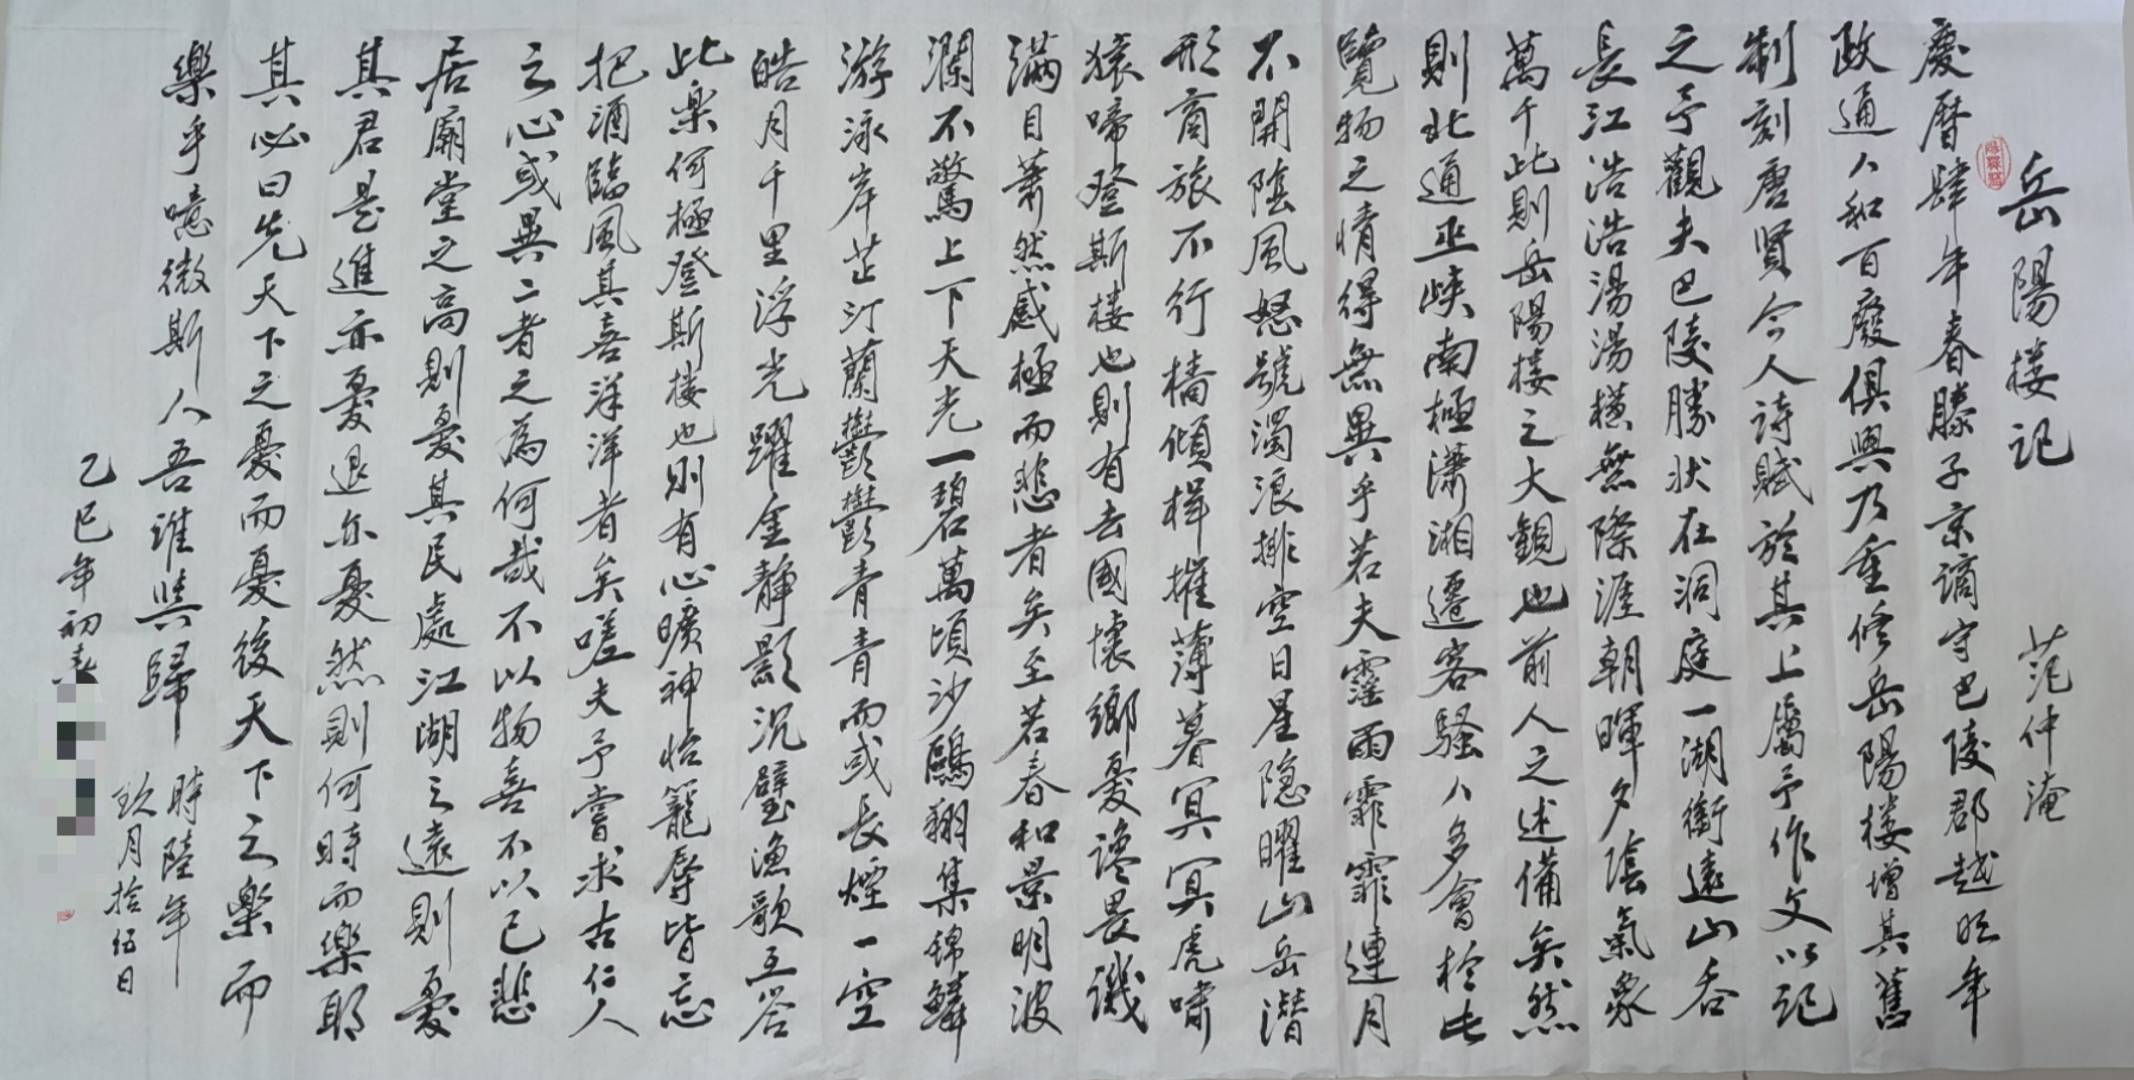 岳陽楼記 范仲淹
慶曆肆年春滕子京謫守巴陵郡越明年
政通人和百廢俱興乃重修岳陽楼增其舊
制刻唐賢今人詩賦於其上屬予作文以記
之予觀夫巴陵勝状在洞庭一湖銜遠山吞
長江浩浩湯湯橫無際涯朝暉夕陰氣象
萬千此則岳陽楼之大觀也前人之述備矣然
則北通巫峡南極瀟湘遷客騷人多會於此
覽物之情得無異乎若夫霪雨霏霏連月
不開陰風怒號濁浪排空日星隐曜山岳潛
形商旅不行檣傾楫摧薄暮冥冥虎嘯
猿啼登斯楼也則有去國懷鄉憂讒畏譏
满目蕭然感極而悲者矣至若春和景明波
瀾不驚上下天光一碧萬頃沙鷗翔集錦鱗
游泳岸芷汀蘭鬱鬱青青而或長煙一空
皓月千里浮光躍金靜影沉璧漁歌互答
此楽何極登斯楼也則有心曠神怡寵辱皆忘
把酒臨風其喜洋洋者矣嗟夫予嘗求古仁人
之心或異二者之為何哉不以物喜不以己悲
居廟堂之高則憂其民處江湖之遠則憂
其君是進亦憂退亦憂然則何時而樂耶
其必曰先天下之憂而憂後天下之樂而
樂乎噫微斯人吾誰與歸 時陸年
玖月拾伍日
乙巳年初春